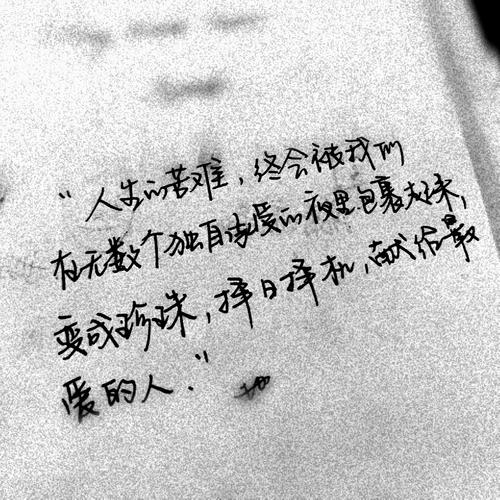 “人生的苦难，终会被我们
在无数个独自凌爱的夜里包裹起来，
变成珍珠，择日择机，献给最
爱的人.”